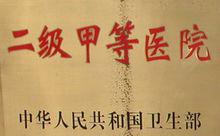 二级甲等医院
中华人民共和国卫生部